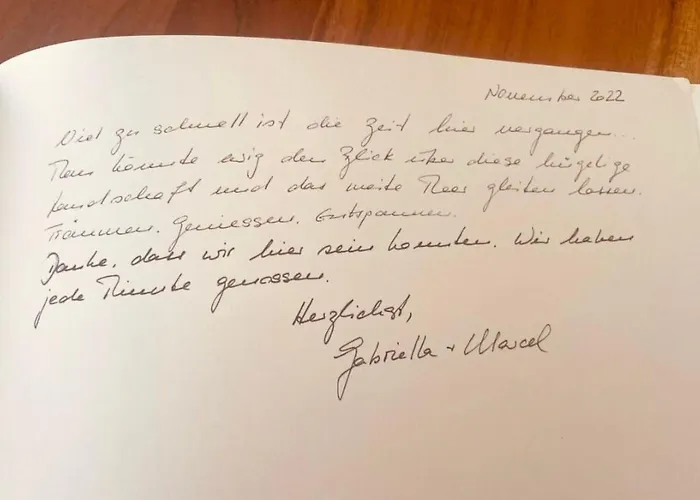 November 2022
Viel zu schnell ist die Zeit hier vergangen...
Man könnte ewig den Blick über diese hügelige
Landschaft und das weite Meer gleiten lassen.
Träumen. Geniessen. Entspannen.
Danke, dass wir hier sein konnten. Wir haben
jede Minute genossen.
Herzlichst,
Gabriella + Marcel